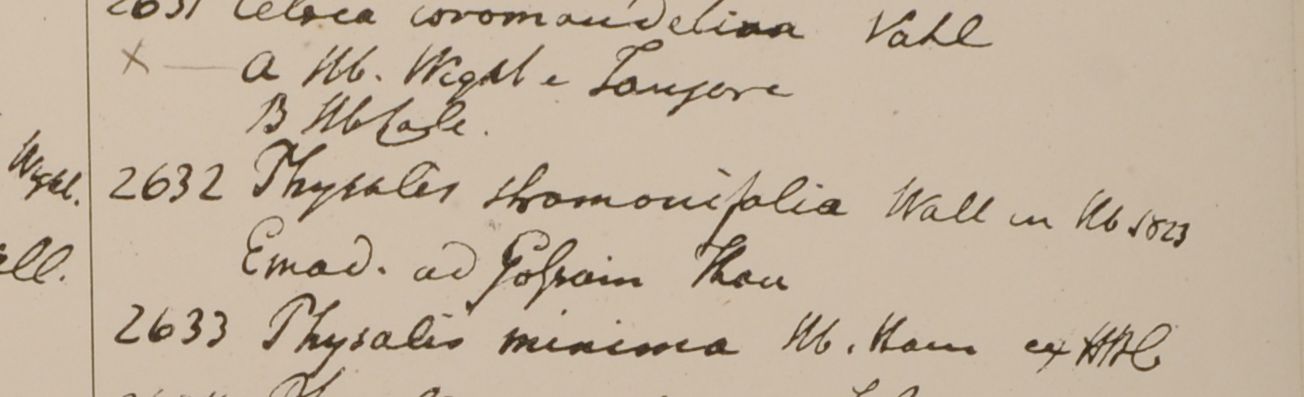 2631 Celsia coromandeliana Vahl
x — a Hb. Wight e Tanjore
B Hb Cale.
Wight. 2632 Physalis stramonifolia Wall in Hb 1823
Emad. ad Gossain Than
ell.
2633 Physalis minima Hb. Ham ex HBC